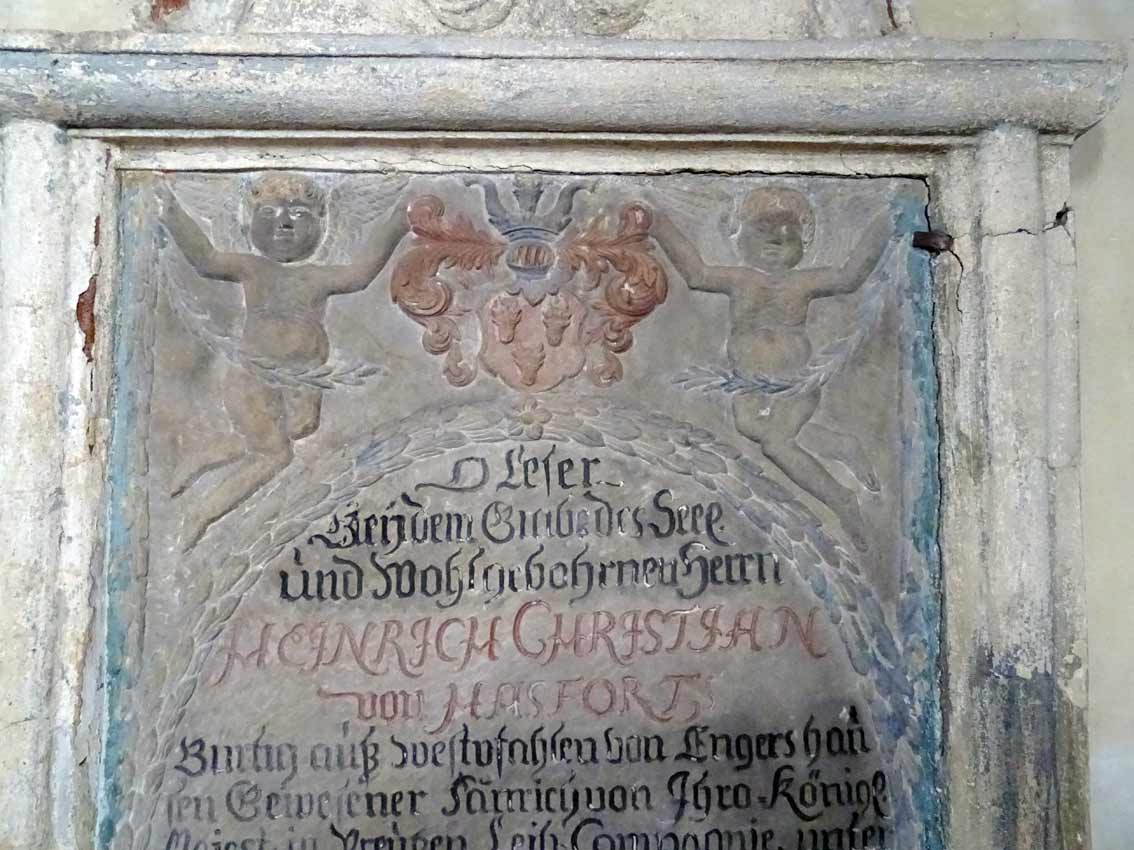 O Leser
Beÿ dem Grabe des Seel
ùnd Wohlgebohrnen Herrn
HEINRICH CHRISTIAN
von HASFORT
Bürtig aùß Westvfahlen von Engershaù
sen Gewesener Fänrich von Ihro Königl
Majest in Preùßen Leib Compagnie, unter